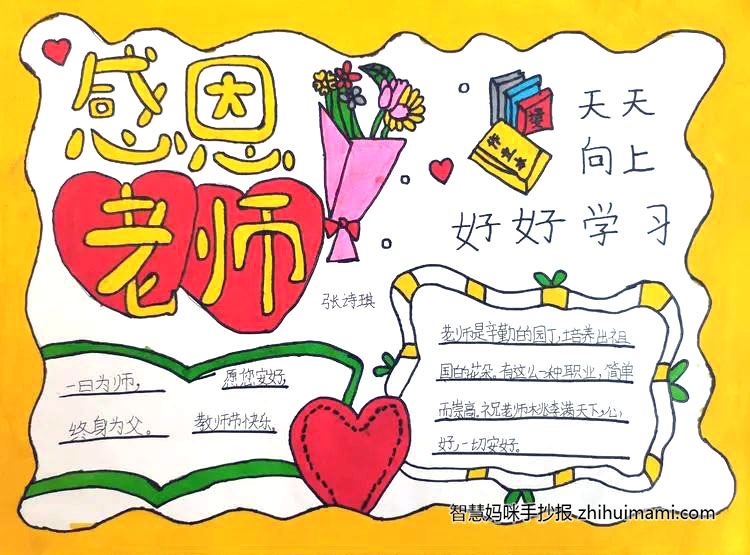 感恩
老师
天天
向上
好好学习
作业本
张诗琪
一日为师,
终身为父。
愿您安好,
教师节快乐。
老师是辛勤的园丁,培养出祖
国的花朵。有这么一种职业,简单
而崇高。祝老师桃李满天下,心
好,一切安好。
智慧妈咪手抄报 zhihuimami.com